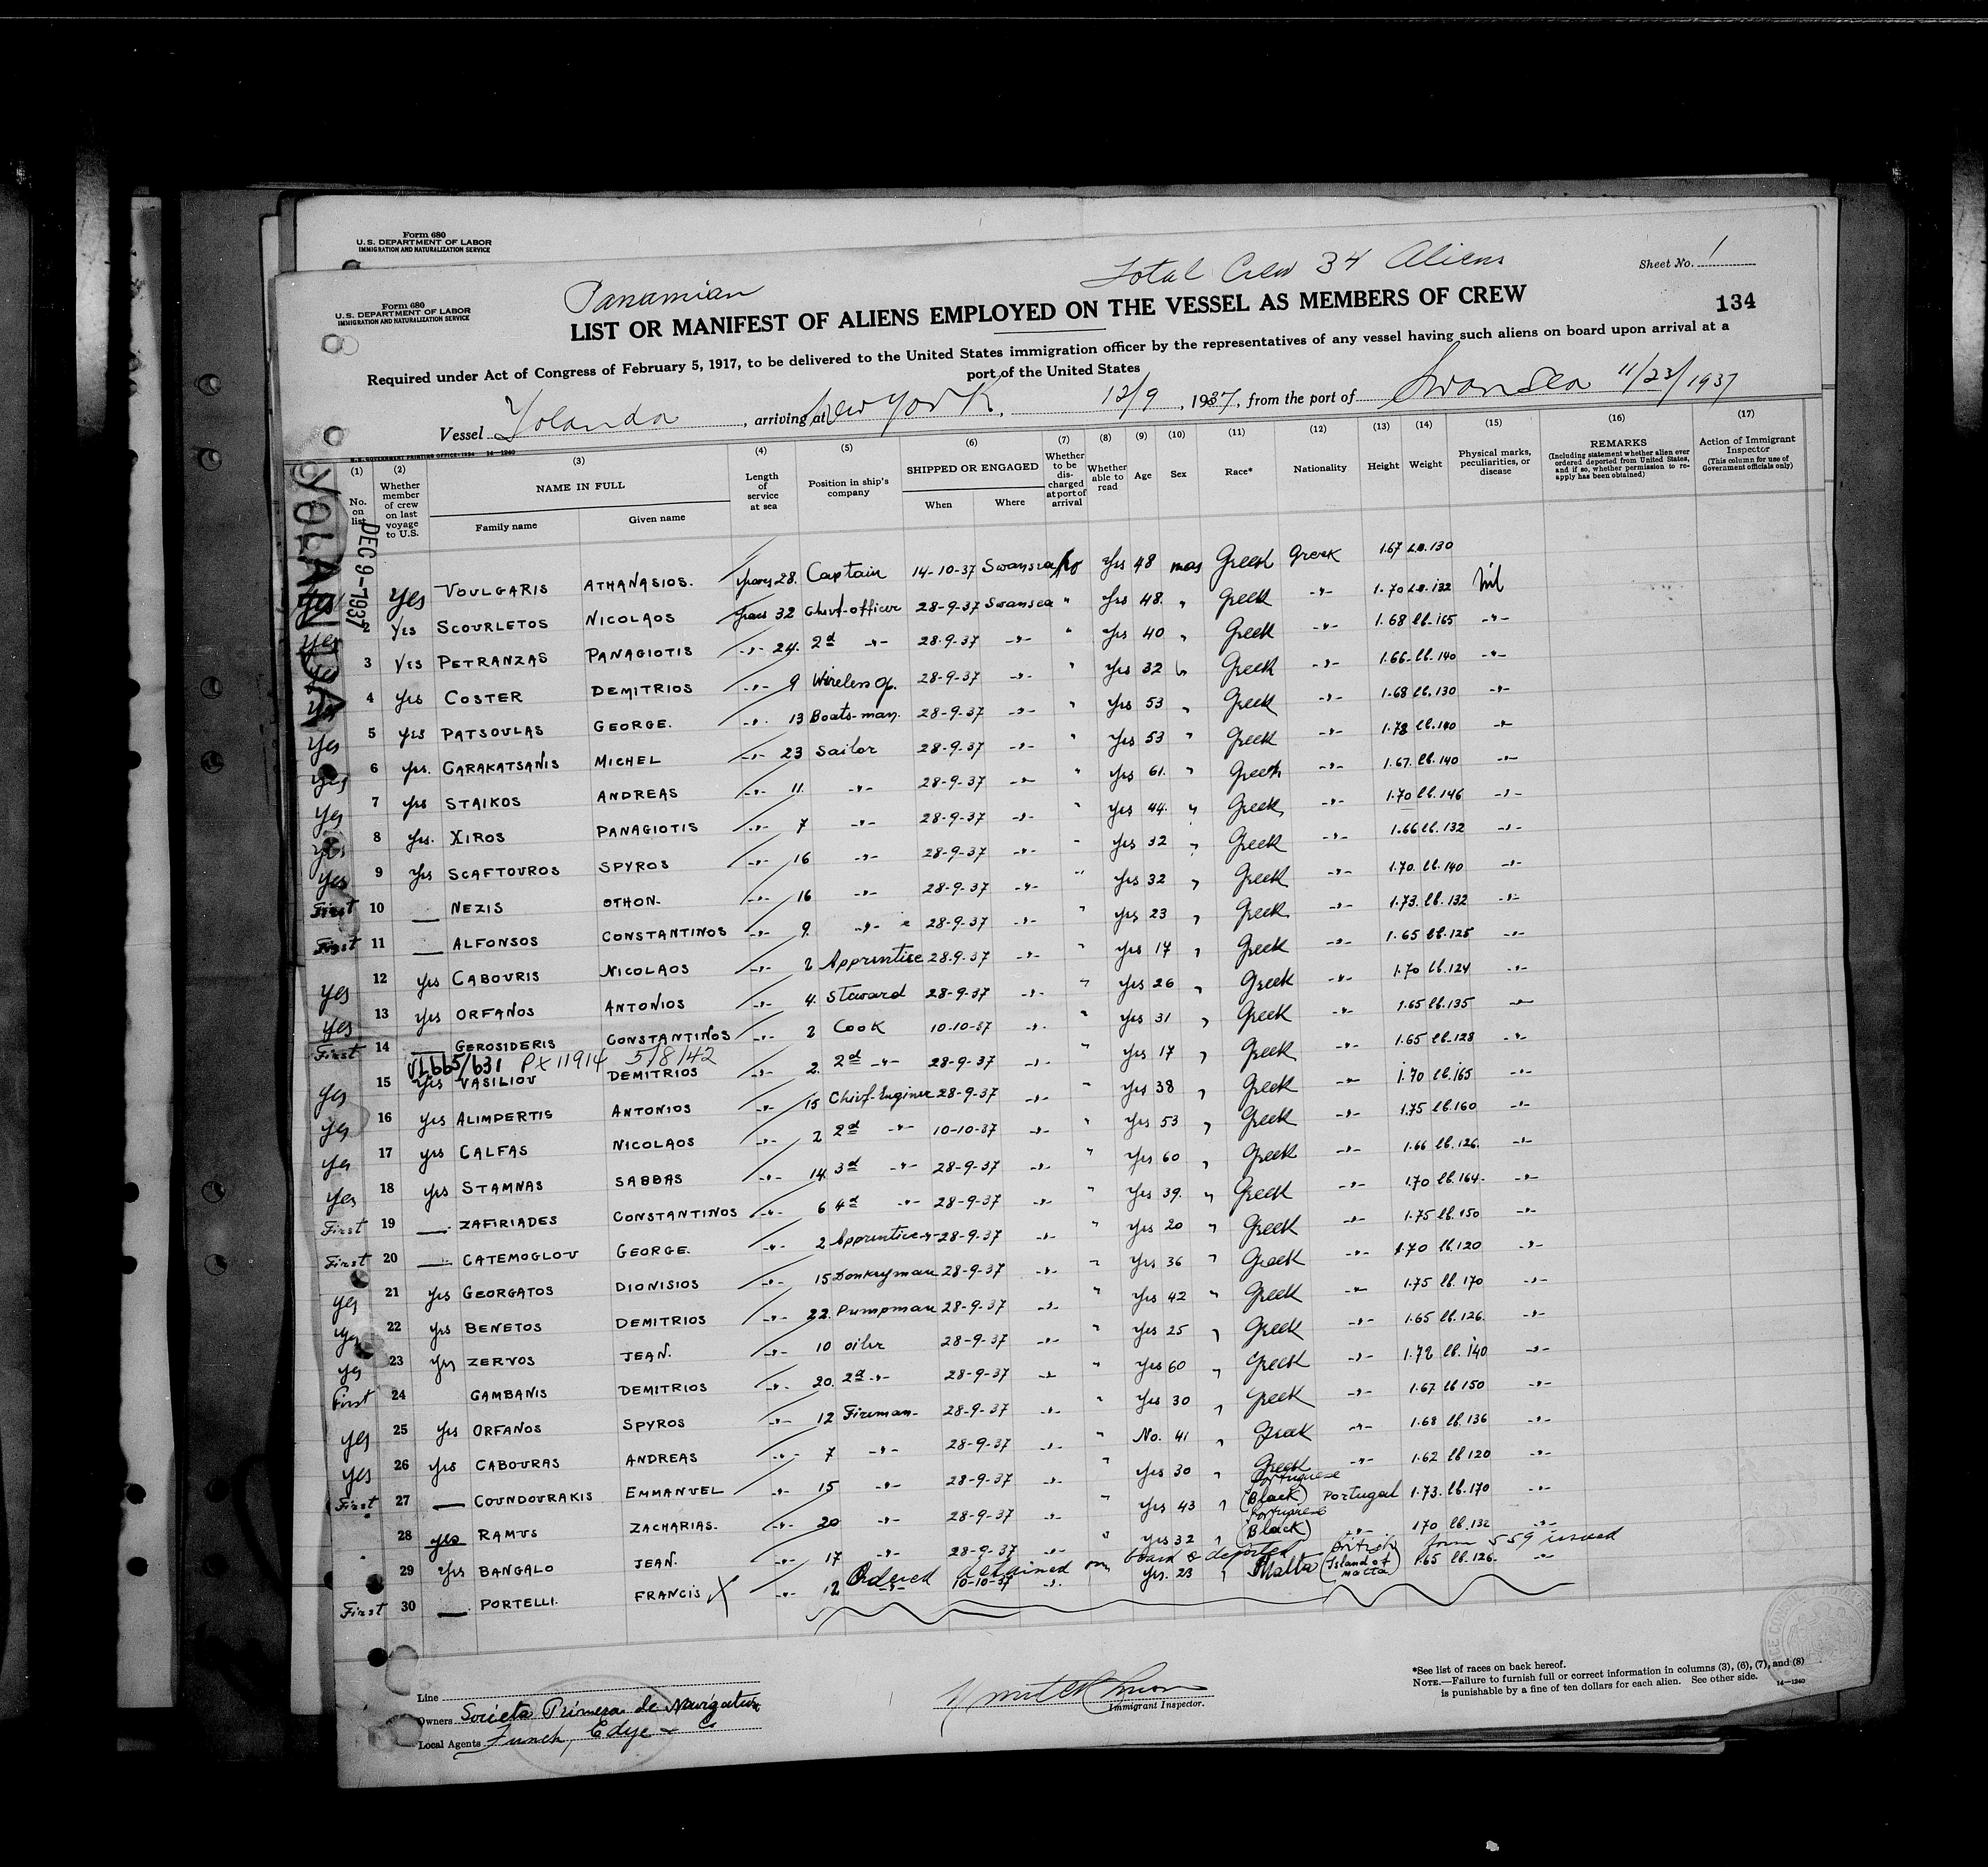 Form 680
U.S. DEPARTMENT OF LABOR
IMMIGRATION AND NATURALIZATION SERVICE
Form 680
U.S. DEPARTMENT OF LABOR
IMMIGRATION AND NATURALIZATION SERVICE
Panamian
Total Crew 34 Aliens
Sheet No. 1
134
LIST OR MANIFEST OF ALIENS EMPLOYED ON THE VESSEL AS MEMBERS OF CREW
Required under Act of Congress of February 5, 1917, to be delivered to the United States immigration officer by the representatives of any vessel having such aliens on board upon arrival at a
port of the United States
Vessel Yolanda, arriving at New York, 12/9, 1937, from the port of Swansea 11/23/1937
YOLANDA
DEC 9-1937
(1) No. on list
(2) Whether member of crew on last voyage to U.S.
(3) NAME IN FULL Family name Given name
(4) Length of service at sea
(5) Position in ship's company
(6) SHIPPED OR ENGAGED When Where
(7) Whether to be discharged at port of arrival
(8) Whether able to read
(9) Age
(10) Sex
(11) Race*
(12) Nationality
(13) Height
(14) Weight
(15) Physical marks, peculiarities, or disease
(16) REMARKS (Including statement whether alien ever ordered deported from United States, and if so, whether permission to reapply has been obtained)
(17) Action of Immigrant Inspector (This column for use of Government officials only)
Yes Yes VOULGARIS ATHANASIOS. years 28. Captain 14-10-37 Swansea No Yes 48 mas Greek Greek 1.67 Lb.130
Yes 2 Yes SCOURLETOS NICOLAOS years 32 Chief-officer 28-9-37 Swansea " Yes 48. " Greek -"- 1.70 Lb.132 Nil
Yes 3 Yes PETRANZAS PANAGIOTIS -"- 24. 2d -"- 28.9-37 -"- " Yes 40 " Greek -"- 1.68 lb-165 -"-
Yes 4 Yes COSTER DEMITRIOS -"- 9 Wireless Op. 28-9-37 -"- " Yes 32 " Greek -"- 1.66. lb.140 -"-
Yes 5 Yes PATSOULAS GEORGE. -"- 13 Boats-man. 28-9-37 -"- " Yes 53 " Greek -"- 1.68 lb.130 -"-
Yes 6 Yes. CARAKATSANIS MICHEL -"- 23 Sailor 28-9-37 -"- " Yes 53 " Greek -"- 1.78 lb.140 -"-
Yes 7 Yes STAIKOS ANDREAS -"- 11. -"- 28-9-37 -"- " Yes 61. " Greek -"- 1.67. lb.140 -"-
Yes 8 Yes. XIROS PANAGIOTIS -"- 7 -"- 28-9-37 -"- " Yes 44. " Greek -"- 1.70 lb.146 -"-
Yes 9 Yes SCAFTOUROS SPYROS -"- 16 -"- 28-9-37 -"- " Yes 32 " Greek -"- 1.66 lb.132 -"-
First 10 — NEZIS OTHON. -"- 16 -"- 28-9-37 -"- " Yes 32 " Greek -"- 1.70. lb.140 -"-
First 11 — ALFONSOS CONSTANTINOS -"- 9. -"- 28-9-37 -"- " Yes 23 " Greek -"- 1.73. lb.132 -"-
Yes 12 Yes CABOURIS NICOLAOS -"- 2 Apprentice 28.9.37 -"- " Yes 17 " Greek -"- 1.65 lb.125 -"-
Yes 13 Yes ORFANOS ANTONIOS -"- 4. Steward 28-9-37 -"- " Yes 26 " Greek -"- 1.70 lb.124 -"-
First 14 — GEROSIDERIS CONSTANTINOS -"- 2 Cook 10-10-37 -"- " Yes 31 " Greek -"- 1.65 lb.135 -"-
VL665/631 PX 11914 5/8/42
Yes 15 Yes VASILIOU DEMITRIOS -"- 2. 2d -"- 28-9-37 -"- " Yes 17 " Greek -"- 1.65 lb.128 -"-
Yes 16 Yes ALIMPERTIS ANTONIOS -"- 15 Chief-Enginer 28-9-37 -"- " Yes 38 " Greek -"- 1.70 lb.165 -"-
Yes 17 Yes CALFAS NICOLAOS -"- 2 2d -"- 10-10-37 -"- " Yes 53 " Greek -"- 1.75 lb.160 -"-
Yes 18 Yes STAMNAS SABBAS -"- 14 3d -"- 28-9-37 -"- " Yes 60 " Greek -"- 1.66 lb.126. -"-
First 19 — ZAFIRIADES CONSTANTINOS -"- 6 4d -"- 28-9-37 -"- " Yes 39. " Greek -"- 1.70 lb.164. -"-
First 20 — CATEMOGLOU GEORGE. -"- 2 Apprentice -"- 28-9-37 -"- " Yes 20 " Greek -"- 1.75 lb.150 -"-
Yes 21 Yes GEORGATOS DIONISIOS -"- 15 Donkeyman 28-9-37 -"- " Yes 36 " Greek -"- 1.70 lb.120 -"-
Yes 22 Yes BENETOS DEMITRIOS -"- 22. Pumpman 28-9-37 -"- " Yes 42 " Greek -"- 1.75 lb.170 -"-
Yes 23 Yes ZERVOS JEAN. -"- 10 oiler 28-9-37 -"- " Yes 25 " Greek -"- 1.65 lb.126. -"-
First 24 GAMBANIS DEMITRIOS -"- 20. 2d -"- 28-9-37 -"- " Yes 60 " Greek -"- 1.72 lb.140 -"-
Yes 25 Yes ORFANOS SPYROS -"- 12 Fireman- 28-9-37 -"- " Yes 30 " Greek -"- 1.67. lb 150 -"-
Yes 26 Yes CABOURAS ANDREAS -"- 7 -"- 28-9-37 -"- " No. 41 " Greek -"- 1.68 lb.136 -"-
First 27 — COUNDOURAKIS EMMANUEL -"- 15 -"- 28-9-37 -"- " Yes 30 " Greek -"- 1.62 lb 120 -"-
28 yes RAMUS ZACHARIAS. -"- 20 -"- 28-9-37 -"- " Yes 43 " Portuguese (Black) Portugal 1.73. lb.170 -"-
29 Yes BANGALO JEAN. -"- 17 -"- 28-9-37 -"- " Yes 32 " Portuguese (Black) -"- 1.70 lb.132 -"-
Ordered detained on board & deported form 559 issued
First 30 — PORTELLI. FRANCIS X -"- 12 -"- 10-10-37 -"- Yes. 23 " Malta British (Island of Malta) 1.65 lb.126. -"-
Line
Owners Societa Primera de Navigation
Local Agents Funch, Edye & Co
Immigrant Inspector.
*See list of races on back hereof.
NOTE.—Failure to furnish full or correct information in columns (3), (6), (7), and (8)
is punishable by a fine of ten dollars for each alien. See other side.
14—1240